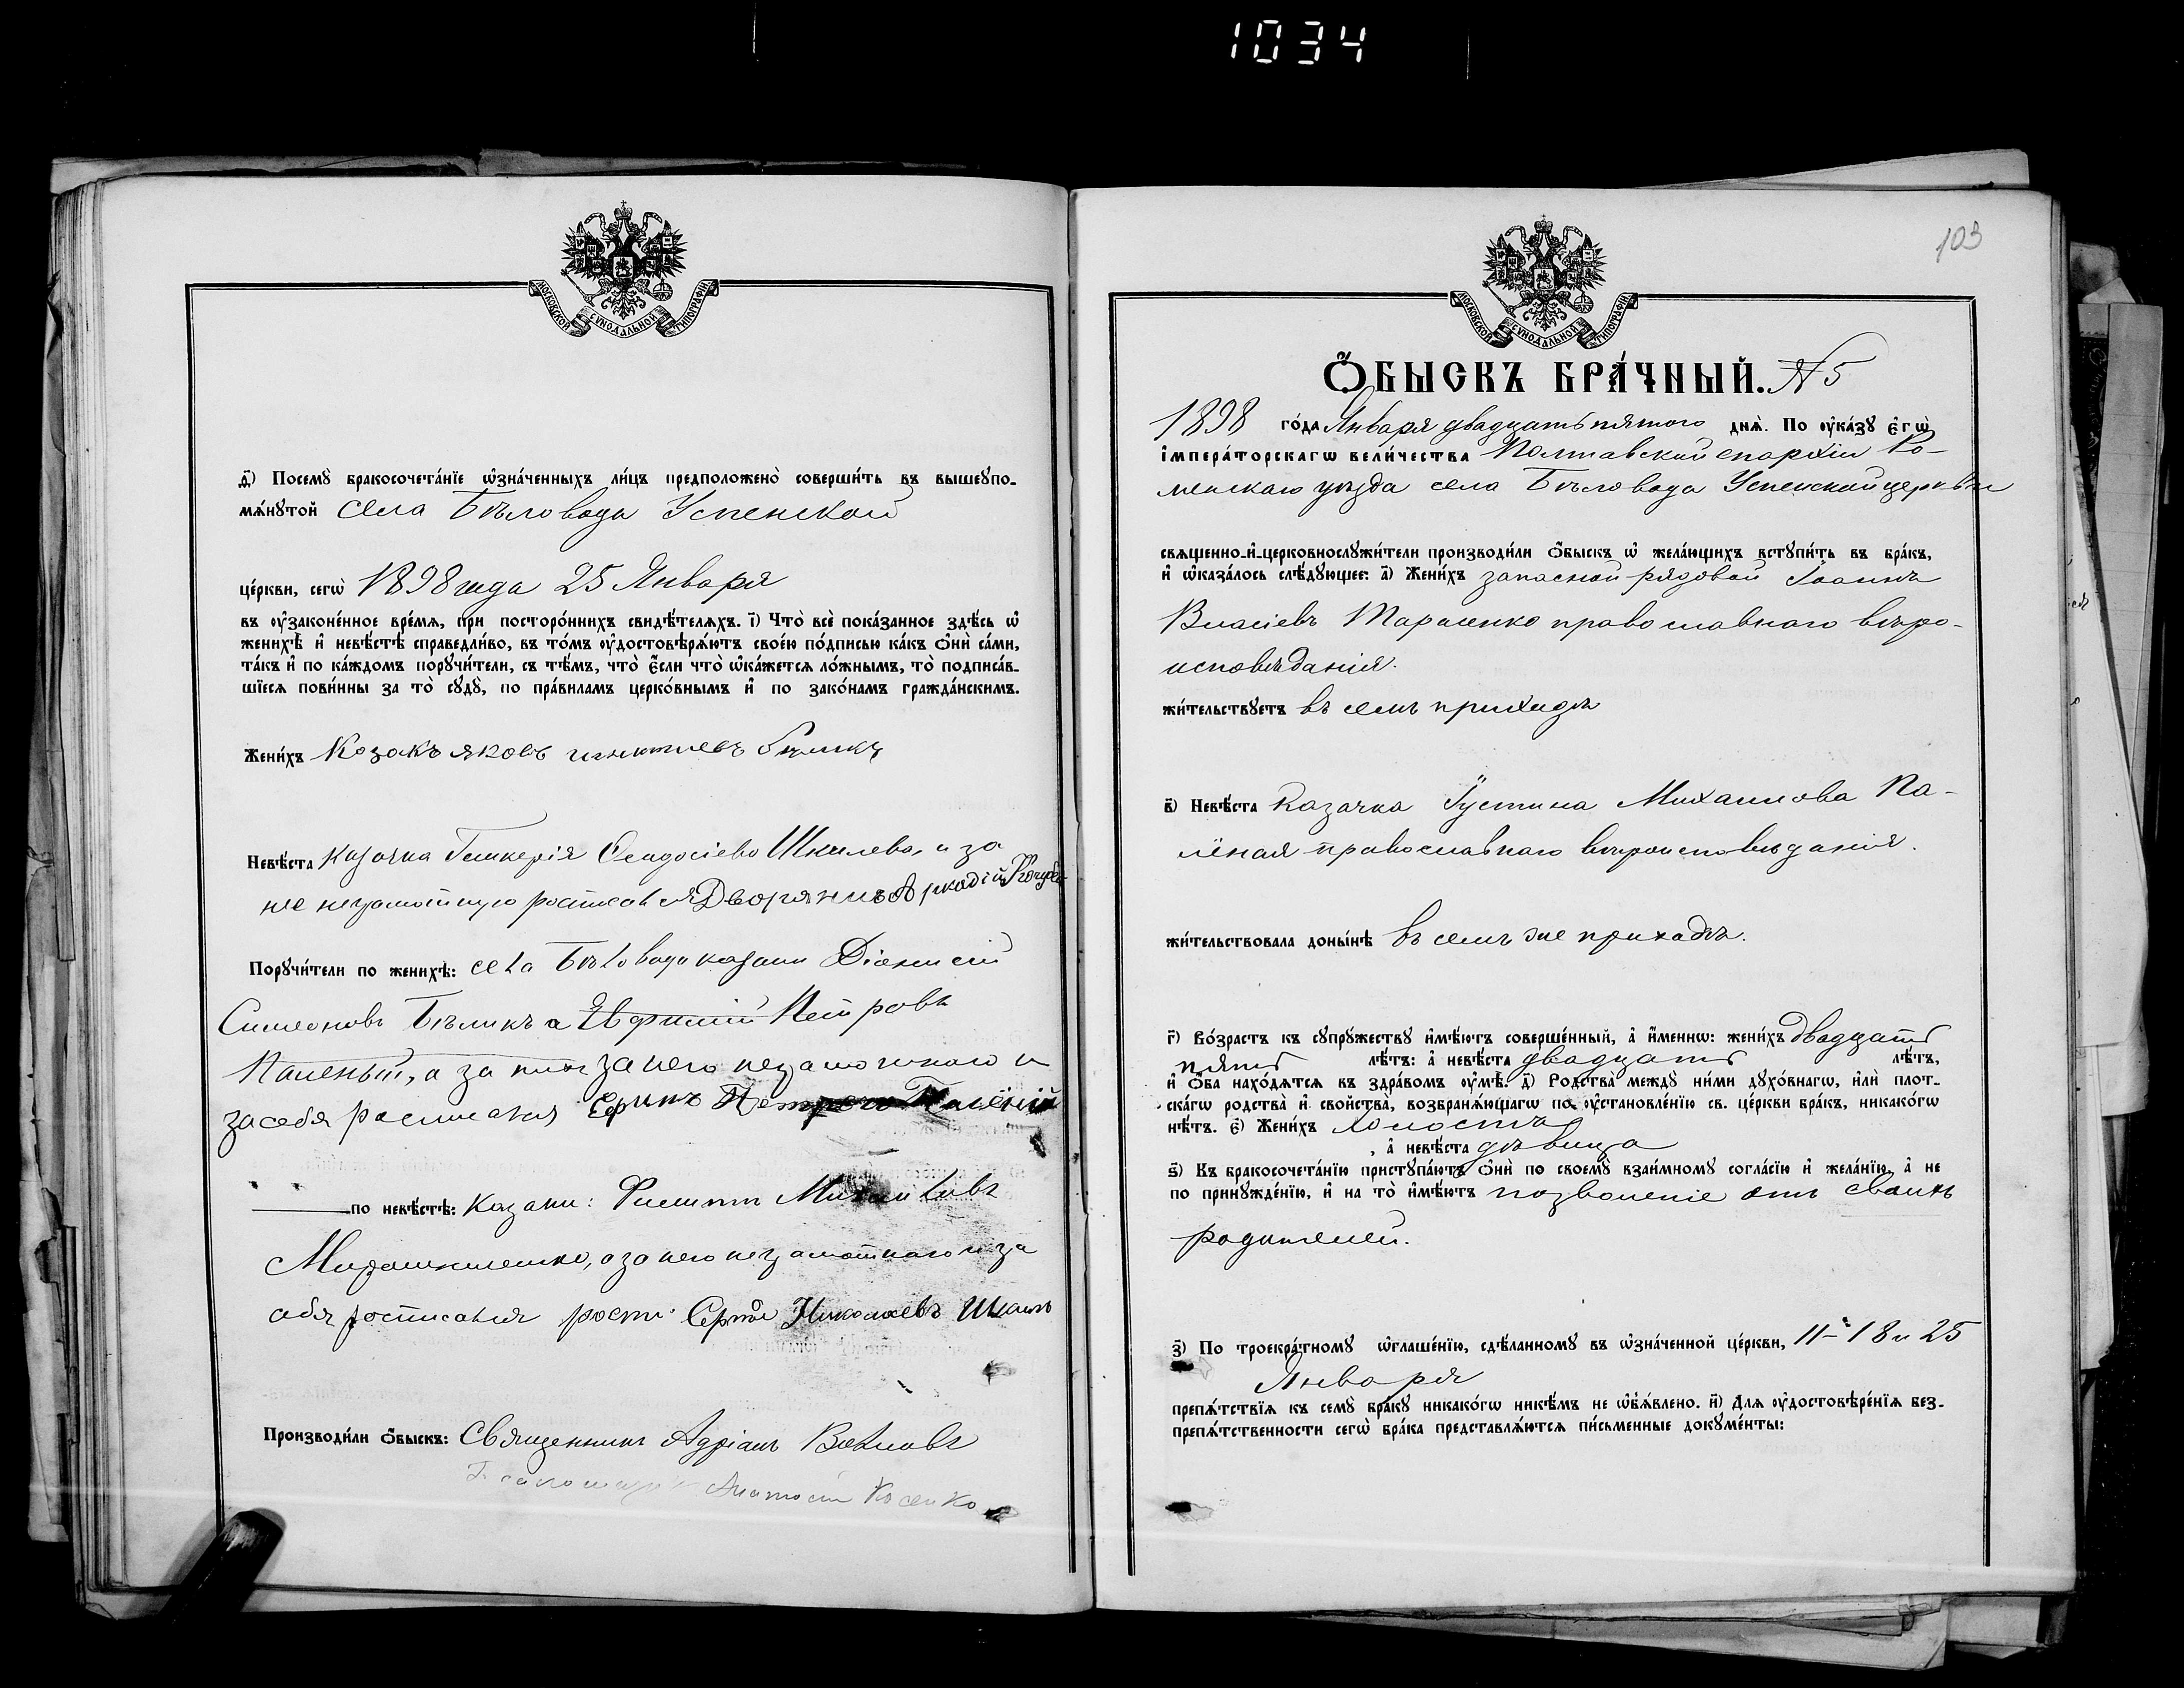 1034
МОСКОВСКОЙ СѴНОДАЛЬНОЙ ТИПОГРАФІИ
д҃і) Посемꙋ̀ бракосочета́нїе ѡ҆зна́ченныхъ ли́цъ предположено̀ соверши́ть въ вышеꙋпо-
мѧ́нꙋтой села Бѣловода Успенской
це́ркви, сегѡ̀ 1898 года 25 Января
въ ᲂу҆законе́нное вре́мѧ, при посторо́ннихъ свидѣ́телѧхъ. і҃) Что̀ всѐ пока́занное здѣ́сь ѡ҆
женихѣ̀ и҆ невѣ́стѣ справедли́во, въ то́мъ ᲂу҆достовѣрѧ́ютъ свое́ю по́дписью ка́къ ѻ҆нѝ са́ми,
та́къ и҆ по ка́ждомъ порꙋчи́тели, съ тѣ́мъ, что̀ є҆́сли что̀ ѡ҆ка́жетсѧ ло́жнымъ, то̀ подписа́в-
шїесѧ пови́нны за то̀ сꙋдꙋ̀, по пра́виламъ церко́внымъ и҆ по зако́намъ гражда́нскимъ.
Жени́хъ Козакъ яковъ
Невѣ́ста казачка Гликерія Феодосіева Шкилева, и за
нее неграмотную росписался Дворянинъ Аркадій
Порꙋчи́тели по женихѣ̀: села Бѣловода казаки Діонисій
Симеоновъ Бѣликъ а Евфимій Петровъ
Паленый, а за него неграмотнаго и
за себя росписался Ефимъ
по невѣ́стѣ: Казаки: Филиппъ Михаиловъ
Мирошниченко, а за него неграмотнаго и за
себя росписался Сергѣй Николаевъ
Производи́ли ѻ҆́быскъ: Священникъ Адріанъ
Псаломщикъ Анатолій Косенко
103
МОСКОВСКОЙ СѴНОДАЛЬНОЙ ТИПОГРАФІИ
Ѻ҆́БЫСКЪ БРА́ЧНЫЙ. N 5
1898 го́да Января двадцать пятого днѧ̀. По ᲂу҆ка́зꙋ є҆гѡ̀
і҆мпера́торскагѡ вели́чества Полтавской епархіи Ро-
менскаго уѣзда села Бѣловода Успенской церкви
свѧщенно-и҆-церковнослꙋжи́тели производи́ли ѻ҆́быскъ ѡ҆ жела́ющихъ встꙋпи́ть въ бра́къ,
и҆ ѡ҆каза́лось слѣ́дꙋющее: а҃) Жени́хъ запасной рядовой Іоаннъ
Власіевъ Тарасенко православнаго вѣро-
исповѣданія.
жи́тельствꙋетъ въ семъ приходѣ
в҃) Невѣ́ста казачка Іустина Михаилова Па-
лёная православнаго вѣроисповѣданія.
жи́тельствовала доны́нѣ въ семъ же приходѣ.
г҃) Во́зрастъ къ сꙋпрꙋ́жествꙋ и҆мѣ́ютъ соверше́нный, а҆ и҆́меннѡ: жени́хъ двадцать
пять лѣ́тъ: а҆ невѣ́ста двадцать лѣ́тъ,
и҆ ѻ҆́ба нахо́дѧтсѧ въ здра́вомъ ᲂу҆мѣ̀. д҃) Родства̀ междꙋ̀ ни́ми дꙋхо́внагѡ, и҆лѝ плот-
ска́гѡ родства̀ и҆ свойства̀, возбранѧ́ющагѡ по ᲂу҆становле́нїю св. це́ркви бра́къ, никако́гѡ
нѣ́тъ. є҃) Жени́хъ холостъ
, а҆ невѣ́ста дѣвица
ѕ҃) Къ бракосочета́нїю пристꙋпа́ютъ ѻ҆нѝ по своемꙋ̀ взаи́мномꙋ согла́сїю и҆ жела́нїю, а҆ не
по принꙋжде́нїю, и҆ на то̀ и҆мѣ́ютъ позволеніе отъ своихъ
родителей.
з҃) По троекра́тномꙋ ѡ҆глаше́нїю, сдѣ́ланномꙋ въ ѡ҆зна́ченной це́ркви, 11-18 и 25
Января
препѧ́тствїѧ къ семꙋ̀ бра́кꙋ никако́гѡ никѣ́мъ не ѡ҆б̾ѧ́влено. и҃) Длѧ ᲂу҆достовѣре́нїѧ без-
препѧ́тственности сегѡ̀ бра́ка представлѧ́ютсѧ пи́сьменные докꙋме́нты: